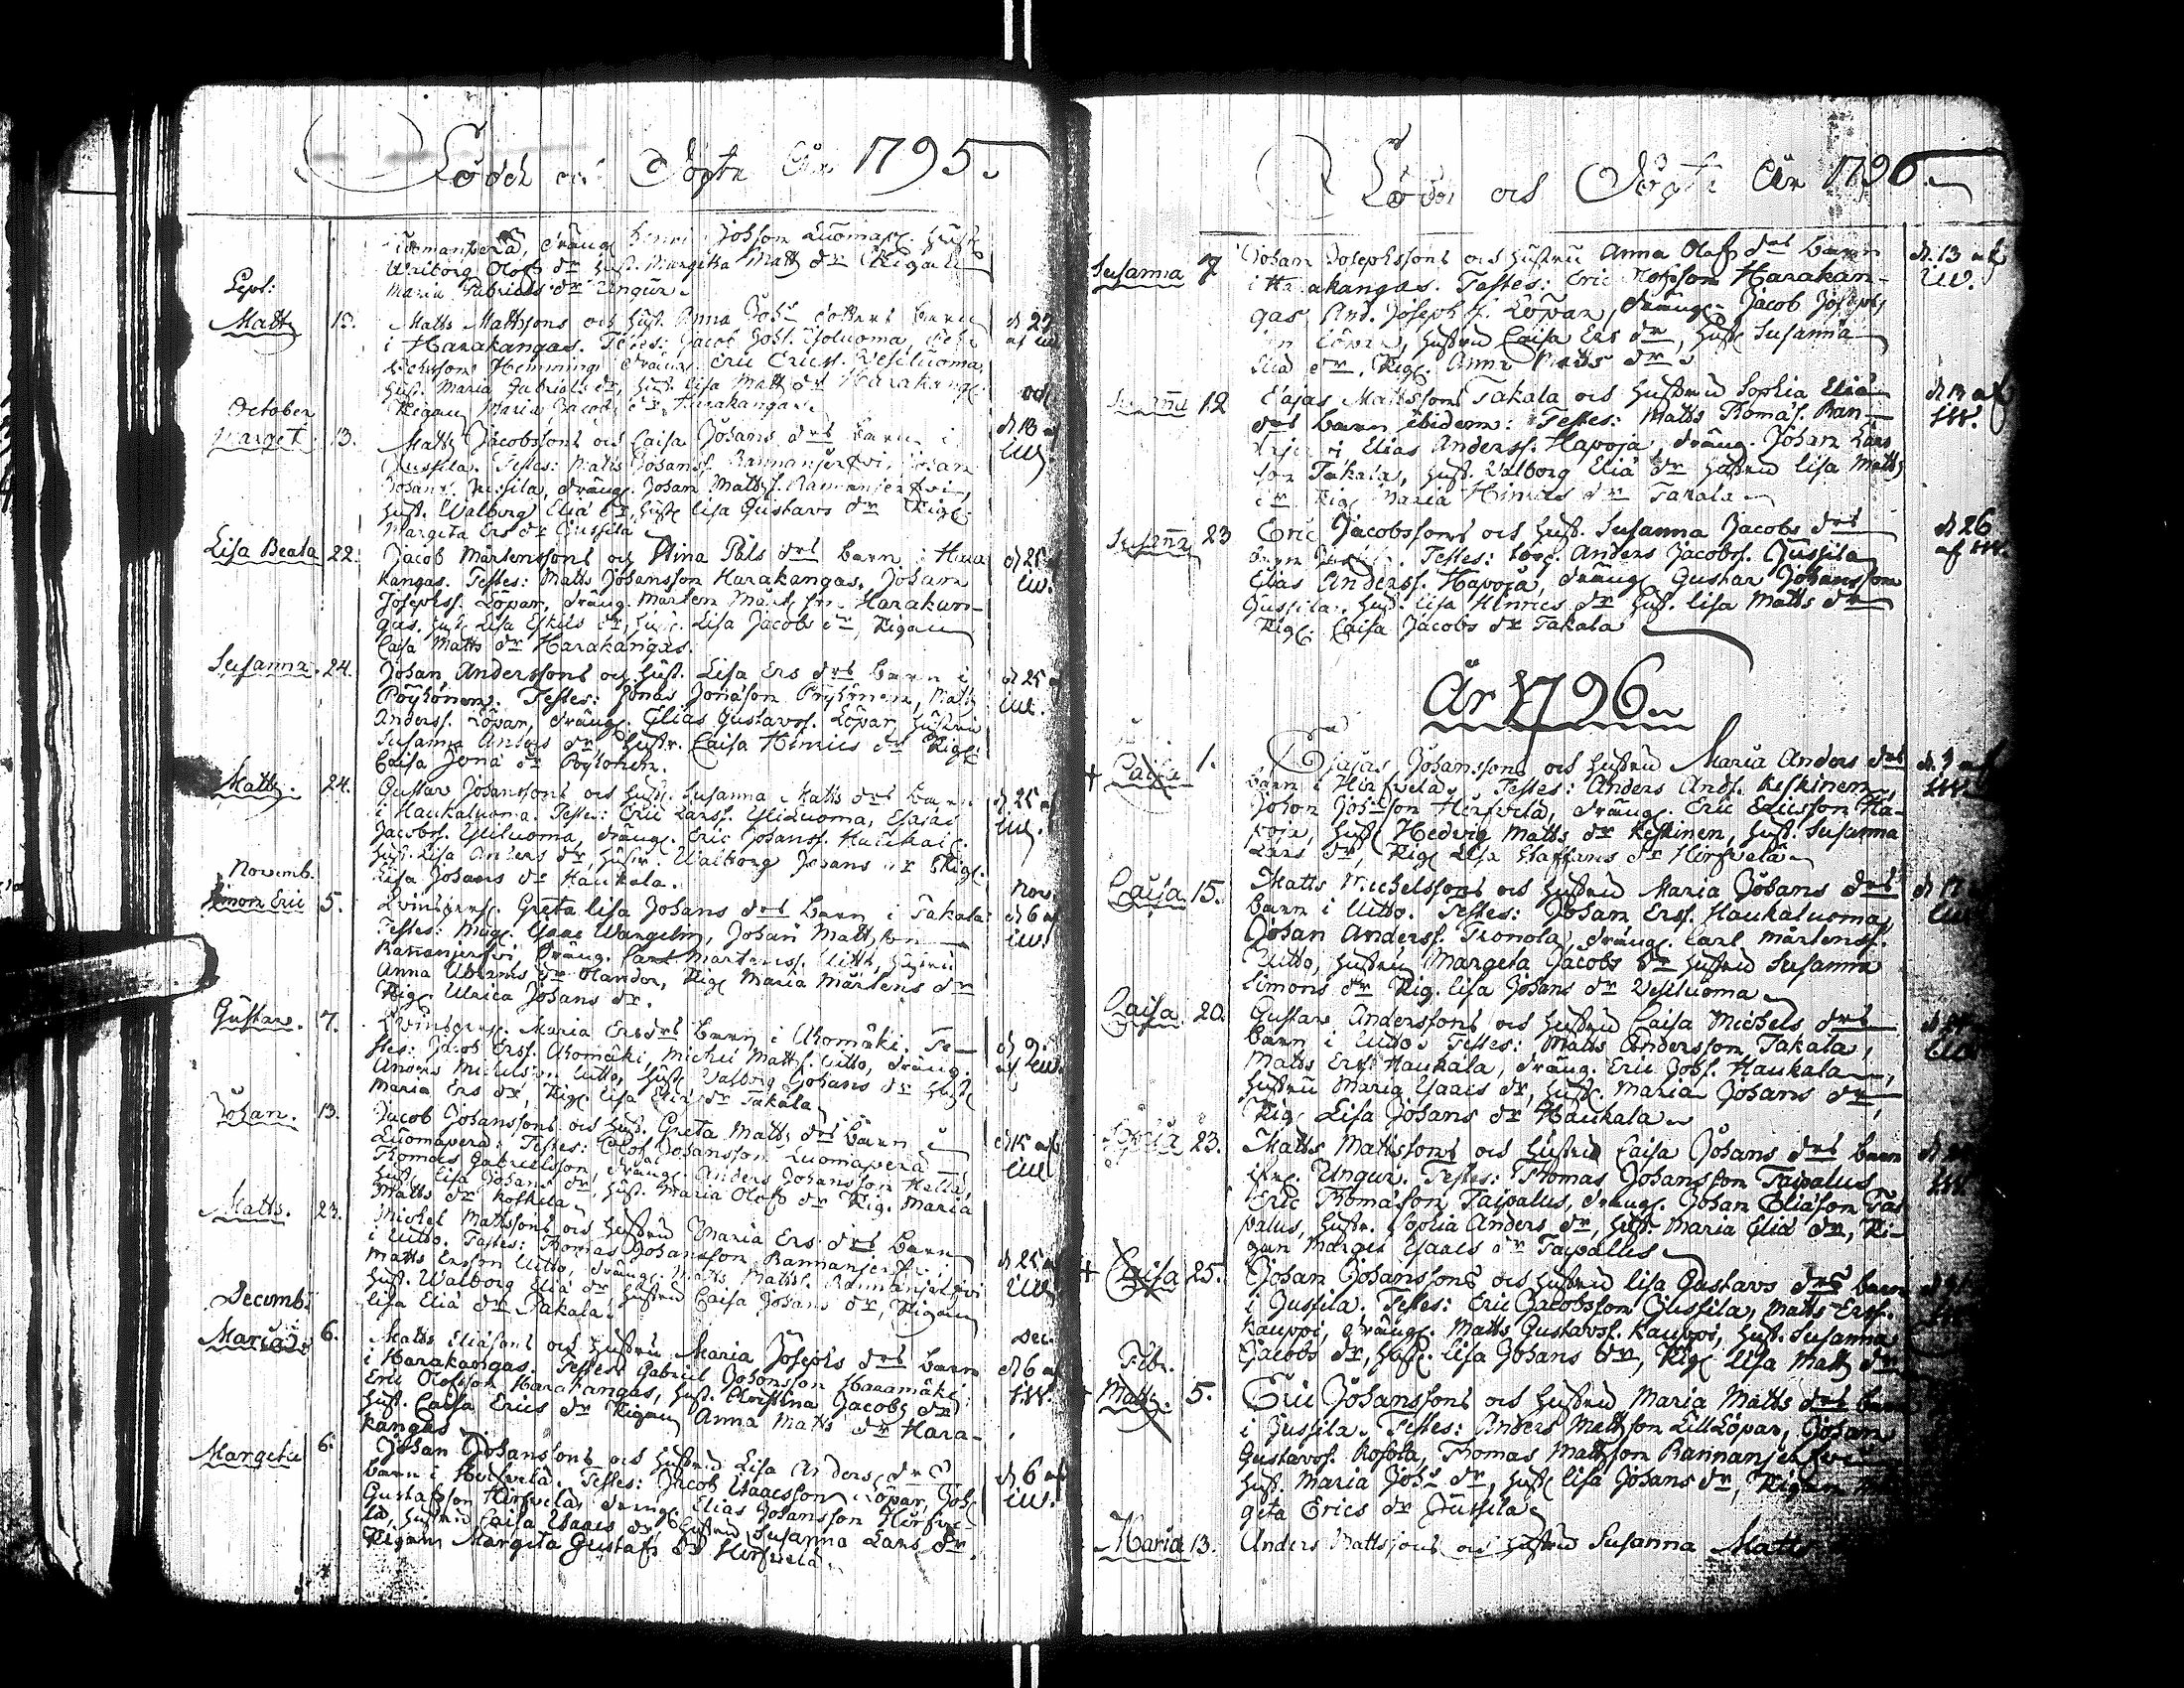 Födde och Döpte År 1795.
Luomanperä, dräng Henri Johsson Luomap. Hust
Walborg Olofs dr hust. Margetha Matts dr Pigan
Maria Gabriels dr Ungur.
Sept:
Matts 13. Matts Mattssons och hust. Anna Johs dotters barn d 27
i Harakangas. Testes: Jacob Johs. Ylöluoma, af LW
Hemming, dräng. Eric Ericss. Vesiluoma,
hust. Maria Gabriels dr, hust. Lisa Matts dr Harakang.
Pigan Maria Jacobs dr Harakangas.
October Oct
Marget. 13. Matts Jacobssons och Caisa Johans drs barn i d 18 af
Jussila. Testes: Matts Johanss. Rannanjerfvi, Johan LW
Johans. Jussila, dräng. Johan Mattss. Rannanjerfvi,
hust. Walborg Eliæ dr, hust. Lisa Gustavs dr Pig.
Margeta Ers dr Jussila
Lisa Beata 22. Jacob Mårtenssons och Stina Påls drs barn i Hara d 25
kangas. Testes: Matts Johansson Harakangas, Johan LW.
Josephss. Löpar, dräng. Mårten Harakan-
gas. hust Lisa Eskils dr, hust. Lisa Jacobs dr, Pigan
Caisa Matts dr Harakangas.
Susanna. 24. Johan Anderssons och hust. Lisa Ers drs barn i d 25
Pöyhönen. Testes: Jonas Jonasson Pöyhönen, Matts LW.
Anderss. Löpar, dräng. Elias Gustavss. Löpar, hustru
Susanna Anders dr, hustr. Caisa Henrics dr Pig.
Caisa Jona dr Pöyhönen.
Matts. 24. Gustav Johanssons och hust. Susanna Matts drs barn d 25 af
i Haukaluoma. Testes: Eric Larss. Yliluoma, Esaias LW.
Jacobss. Yliluoma, dräng. Eric Johanss.
hust. Lisa Anders dr, hustr. Walborg Johans dr Pig.
Lisa Johans dr Haukala.
Novemb. Nov.
Simon Eric 5. Qvinspers. Greta Lisa Johans drs barn i Takala: d 6 af
Testes: Mag. Isaac Wangelin, Johan Mattsson LW
Rannanjerfvi, Dräng. Carl Mårtenss. Uitto, hustru
Anna Abrams dr Olander, Pig. Maria Mårtens dr
Pig. Ulrica Johans dr.
Gustav. 7. Qvinspers. Maria Ersdrs barn i Ahomäki. Te- d 9
stes: Jacob Erss. Ahomäki Michel Mattss. Uitto, dräng. af LW.
Anders Michelsson Uitto, hust Valborg Johans dr hust
Maria Ers dr, Pig. Lisa Eliæ dr Takala
Johan. 13. Jacob Johanssons och hust. Greta Matts drs barn i d 15 af
Luomaperä: Testes: Olof Johansson Luomaperä LW
Thomas Gabrielsson, dräng. Anders Johansson
hust Lisa Johans dr, hust. Maria Olofs dr Pig. Maria
Matts dr Koskela
Matts. 23. Michel Mattssons och hustru Maria Ers drs barn d 25 af
i Uitto. Testes: Thomas Johansson Rannanjerfvi LW
Matts Ersson Uitto, dräng. Matts Mattss. Rannanjerfvi
hust. Walborg Eliæ dr hustru Caisa Johans dr, Pigan
Lisa Eliæ dr Takala.
Decemb. Dec.
Maria 6. Matts Eliassons och hustru Maria Josephs drs barn d 6 af
i Harakangas. Testes Gabriel Johansson Haramäki LW.
Eric Olofsson Harakangas, hust. Christina Jacobs dr
hust. Caisa Erics dr Pigan Anna Matts dr Hara-
kangas
Margeta 6. Johan Johanssons och hustru Lisa Anders dr
barn i Hirfvelä. Testes: Jacob Isaacsson Löpar, Joh d 6 af
Gustafsson Hirfvelä, dräng. Elias Johansson Hirfve- LW.
lä, hustru Caisa Isaacs dr, hustru Susanna Lars dr,
Pigan Margeta Gustafs dr Hirfvelä.

Födde och Döpte År 1796.
Susanna 7 Johan Josephssons och hustru Anna Olofs drs barn d. 13 af
i Harakangas. Testes: Eric Olofsson Harakan- LW.
gas And. Joseph s. Löpar, dräng. Jacob Josephs
son Löpar, hustru Caisa Ers dr, hust Susanna
Eliæ dr, Pig. Anna Matts dr
Susanna 12 Esajas Mattssons Takala och hustru Sophia Eliæ d 13 af
drs barn ibidem: Testes: Matts Thomas. Ran- LW.
Elias Anderss. Hapoja, dräng. Johan Lars
son Takala, hust. Valborg Eliæ dr hustru Lisa Matts
dr Pig. Maria Hinrics dr Takala
Susanna 23 Eric Jacobssons och hust. Susanna Jacobs drs d 26
barn Jussila. Testes: Anders Jacobss. Jussila af LW.
Elias Anderss. Hapoja, dräng Gustav Johansson
Jussila, hust. Lisa Hinrics dr hust. Lisa Matts dr
Pig. Caisa Jacobs dr Takala
År 1796.
+ Caisa 1. Esajas Johanssons och hustru Maria Anders drs d. 3 af
barn i Hirfvelä. Testes: Anders Ands. Keskinen, LW.
Johan Johsson Hirfvelä, dräng. Eric Ericsson Ha-
poja, hust Hedvig Matts dr Keskinen, hust. Susanna
Lars dr, Pig Lisa Staffans dr Hirfvelä
Caisa 15. Matts Michelssons och hustru Maria Johans drs d 17
barn i Uitto. Testes: Johan Erss. Haukaluoma, LW
Johan Anderss. Tronola, dräng. Carl Mårtenss.
Uitto, hustru Margeta Jacobs dr hustru Susanna
Simons dr Pig. Lisa Johans dr Vesiluoma
Caisa 20. Gustav Anderssons och hustru Caisa Michels drs
barn i Uitto. Testes: Matts Andersson Takala, LW
Matts Erss Haukala, dräng. Eric Johs. Haukala,
hustru Maria Isaacs dr, hust. Maria Johans dr,
Pig. Lisa Johans dr Haukala
Sophia 23. Matts Mattssons och hustru Caisa Johans drs barn
Ungur. Testes: Thomas Johansson Taipalus LW
Eric Thomasson Taipalus, dräng. Johan Eliasson Tai
palus, hustr. Sophia Anders dr, hust Maria Eliæ dr, Pi-
gan Marget Isaacs dr Taipalus
+ Caisa 25. Johan Johanssons och hustru Lisa Gustavs drs barn
i Jussila. Testes: Eric Jacobsson Jussila, Matts Erss.
Kauppi, dräng. Matts Gustavss. Kauppi, hust. Susanna
Jacobs dr, hust. Lisa Johans dr, Pig Lisa Matts dr
Febr.
Matts. 5. Eric Johanssons och hustru Maria Matts drs barn
i Jussila. Testes: Anders Mattsson LillLöpar, Johan
Gustavss. Rosola, Thomas Mattsson Rannanjerfvi
hust. Maria Johs dr, hust Lisa Johans dr, Pigan Mar
geta Erics dr Jussila
Maria 13. Anders Mattssons och hustru Susanna Matts